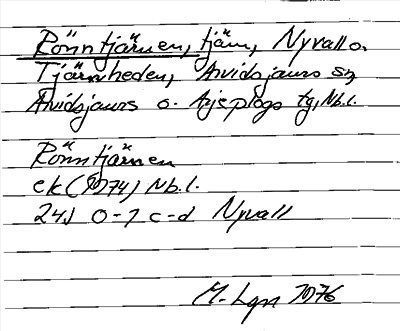 Rönntjärnen, tjärn, Nyvall o.
Tjärnheden, Arvidsjaurs sn
Arvidsjaurs o. Arjeplogs tg, Nb.l.
Rönntjärnen
ek (1974) Nb.l.
24J 0-1 c-d Nyvall
M. Lgn 1976